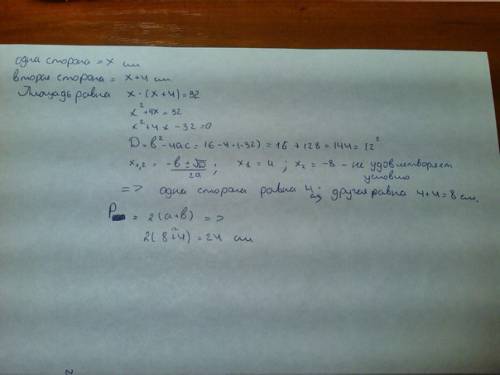 одна сторона = x см
вторая сторона = x+4 см
Площадь равна x·(x+4)=32
x²+4x=32
x²+4x-32=0
D=b²-4ac=16-4·(-32)=16+128=144=12²
x₁,₂ = -b±√D/2a ; x₁=4 ; x₂=-8 - не удовлетворяет
условию
=> одна сторона равна 4 см; другая равна 4+4=8 см.
P = 2(a+b) =>
2(8+4)=24 см